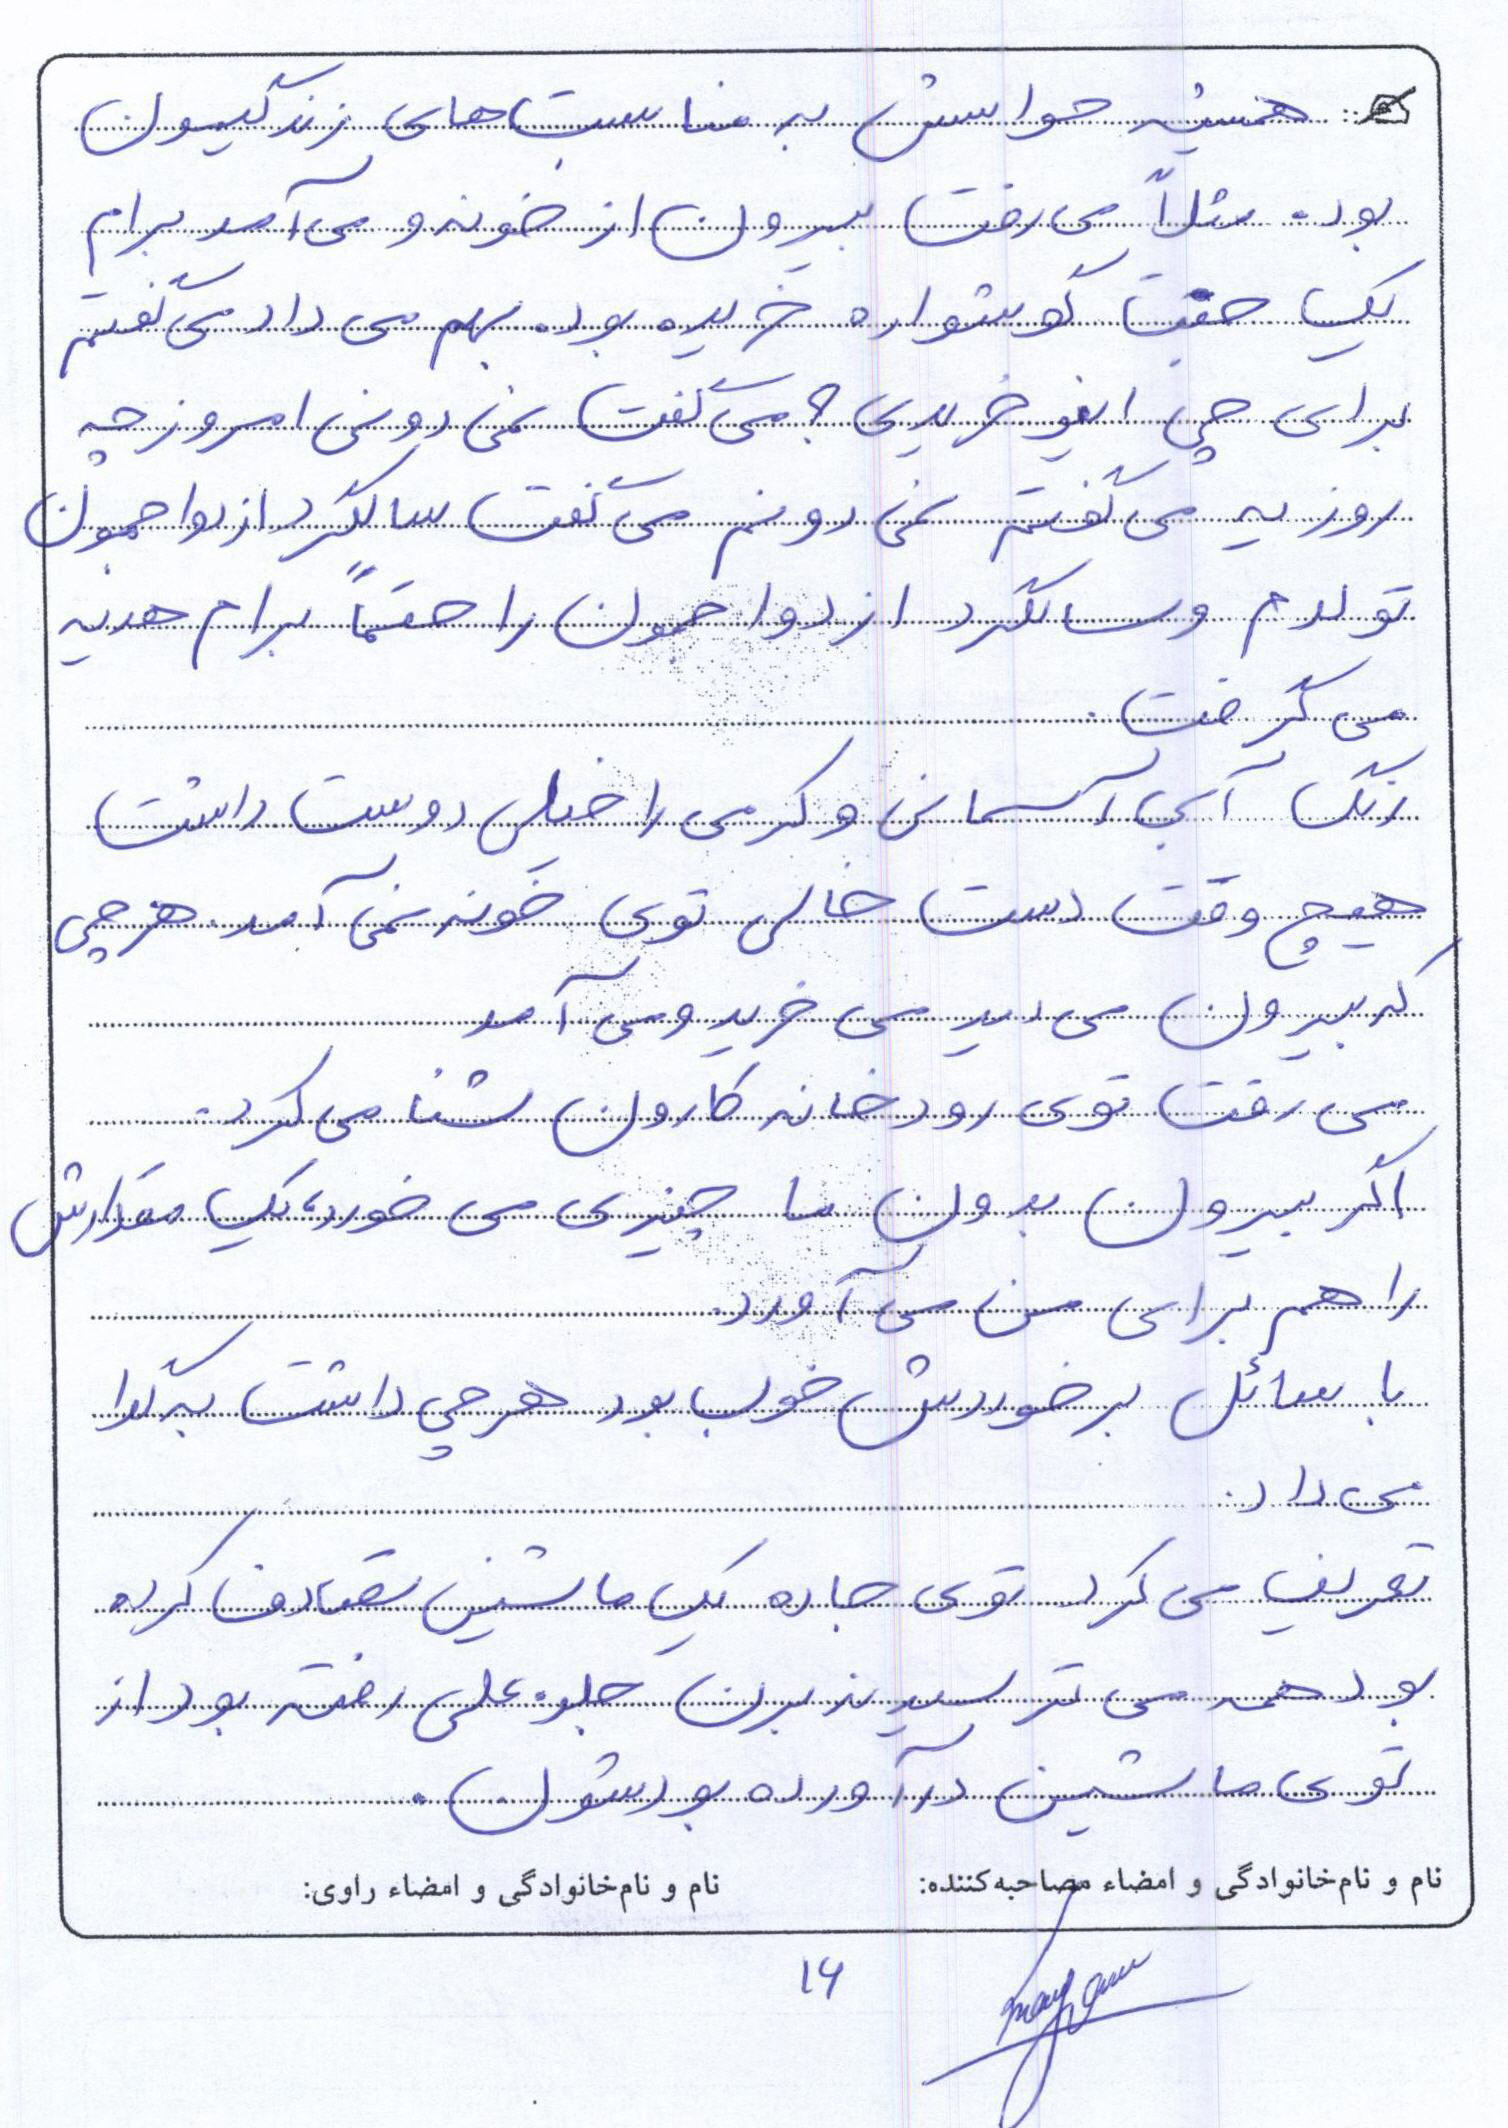 همیشه حواسش به مناسبت‌های زندگیمون
بود. مثلاً می‌رفت بیرون از خونه و می‌آمد برام
یک جفت گوشواره خریده بود. بهم می‌داد می‌گفتم
برای چی اینو خریدی؟ می‌گفت نمی‌دونی امروز چه
روزیه می‌گفتم نمی‌دونم می‌گفت سالگرد ازدواجمون
تولدم و سالگرد ازدواجمون را حتماً برام هدیه
می‌گرفت.
رنگ آبی آسمانی و کرمی را خیلی دوست داشت
هیچ وقت دست خالی توی خونه نمی‌آمد. هرچی
که بیرون می‌دید می‌خرید و می‌آمد
می‌رفت توی رودخانه کارون شنا می‌کرد.
اگر بیرون بدون ما چیزی می‌خورد، یک مقدارش
را هم برای من می‌آورد.
با سائل برخوردش خوب بود هرچی داشت به گدا
می‌داد.
تعریف می‌کرد توی جاده یک ماشین تصادف کرده
بود همه می‌ترسیدند برن جلو. علی رفته بود از
توی ماشین درآورده بودشون.
نام و نام‌خانوادگی و امضاء مصاحبه‌کننده: نام و نام‌خانوادگی و امضاء راوی:
۱۶